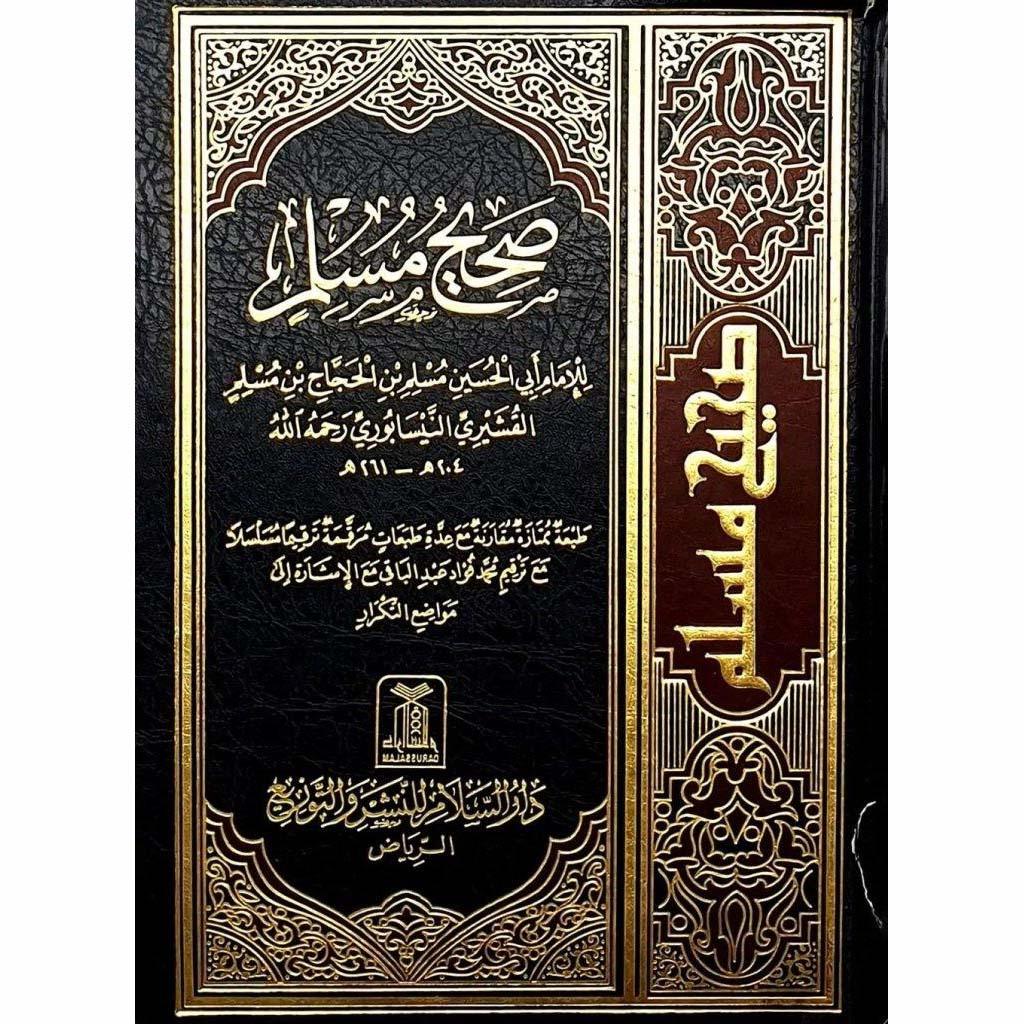 صَحِيحُ مُسْلِمٍ
لِلْإِمَامِ أَبِي الْحُسَيْنِ مُسْلِمِ بْنِ الْحَجَّاجِ بْنِ مُسْلِمٍ
القُشَيْرِيِّ النَّيْسَابُورِيِّ رَحِمَهُ اللهُ
٢٠٤هـ - ٢٦١هـ
طَبْعَةٌ مُمْتَازَةٌ مُقَارَنَةٌ مَعَ عِدَّةِ طَبَعَاتٍ مُرَقَّمَةٌ تَرْقِيمًا مُسَلْسَلًا
مَعَ تَرْقِيمِ مُحَمَّد فُؤَاد عَبْدِ الْبَاقِي مَعَ الْإِشَارَةِ إِلَى
مَوَاضِعِ التَّكْرَارِ
دارالسلام
DARUSSALAM
دَارُ السَّلَامِ لِلنَّشْرِ وَالتَّوْزِيعِ
الرِّيَاض
صحيح مسلم